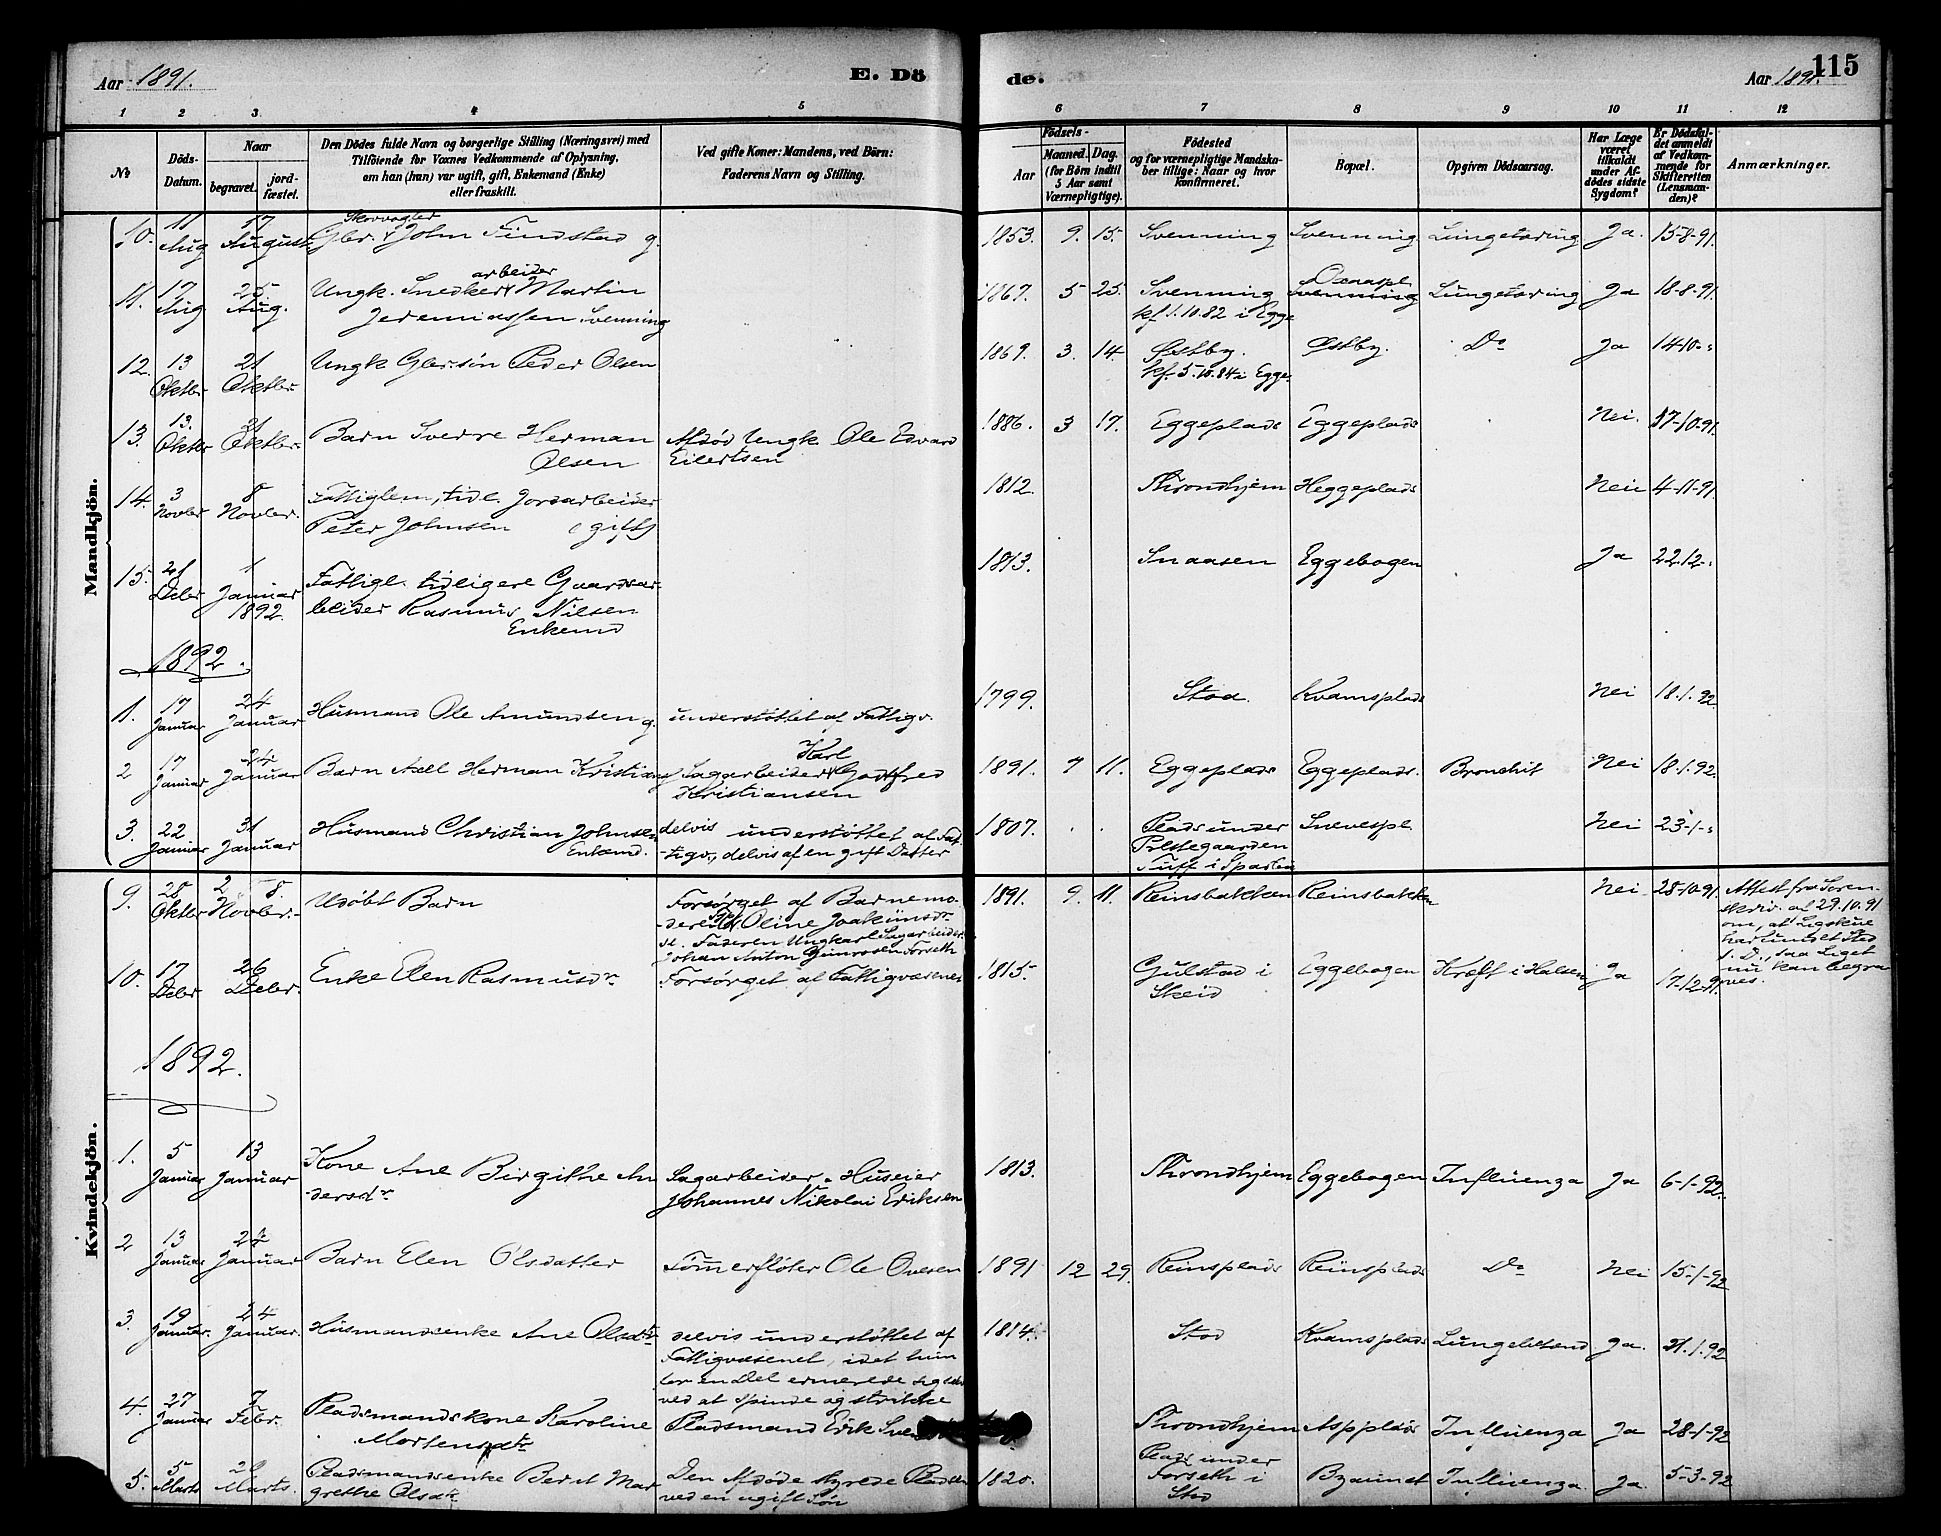 Aar 1891.
E. Dö
de.
Aar 1891.
115
1 2 3. 4 5
6 7 8 9 10 11 12
No
Döds-
Datum.
Naar
begravet.
jord-
fæstet.
Den Dödes fulde Navn og borgerlige Stilling (Næringsvei) med
Tilföiende for Voxnes Vedkommende af Oplysning,
om han (hun) var ugift, gift, Enkemand (Enke)
eller fraskilt.
Ved gifte Koner: Mandens, ved Börn:
Faderens Navn og Stilling.
Födsels-
Aar
Maaned. Dag.
(for Börn indtil
5 Aar samt
Værnepligtige).
Födested
og for værnepligtige Mandska-
ber tillige: Naar og hvor
konfirmeret.
Bopæl.
Opgiven Dödsaarsag.
Har Læge
været
tilkaldt
under Af-
dödes sidste
Sygdom?
Er Dödsfal-
det anmeldt
af Vedkom-
mende for
Skifteretten
(Lensman-
den)?
Anmærkninger.
Mandkjön.
10. 11 Aug 17 August Gbr. Skovvogter John Findstad g. 1853. 9. 15. Svenning Svenning Lungetæring Ja. 15-8-91.
11. 17 Aug 25 Aug. Ungk. Snedkerarbeider Martin
Jeremiassen Svenning 1867. 5 25. Svenning Svenning Lungetæring Ja 18-8-91.
kf. 1.10.82 i Egge
12. 13 Oktbr 21 Oktbr. Ungk Gbr.sön Peder Olsen 1869. 3. 14 Østby. Østby. Do Ja 14-10-
kf. 5.10.84 i Egge.
13. 13. Oktbr 21 Oktbr. Barn Sverre Herman Afdöd Ungk Ole Edvard 1886. 3 17. Eggeplads Eggeplads Nei. 17-10-91.
Olsen Eilertsen
14. 3 Novbr 8 Novbr. Fattiglem, tidl. Jordarbeider 1812. Throndhjem Heggeplads Nei 4-11-91.
Peter Johnsen gift
15. 21 Debr 1 Januar 1892. Fattigl. tidligere Gaardsar- 1813. Snaasen Eggebogen Ja 22.12-
beider Rasmus Nilsen
Enkemd
1892.
1. 17 Januar 24 Januar Husmand Ole Amundsen g. understöttet af Fattigv. 1799. Stod. Kvamsplads Nei 18.1.92.
2 17 Januar 24 Januar Barn Axel Herman Kristian Sagarbeider Karl Godtfred 1891. 7 11. Eggeplads Eggeplads. Bronchit Nei 18.1.92.
Kristiansen
3. 22 Januar 31 Januar Husmand Christian Johnsen delvis understöttet af Fat- 1807. Plads under Nei 23-1-
Enkemd. tigv., delvis af en gift Datter Præstegaarden
Tuff i Sparbu
Kvindekjön.
9. 28 Oktbr 2 Novbr. 8. Udöbt Barn Forsörget af Barnemo- 1891. 9. 11. Reinsbakken Reinsbakken Nei 28-10-91. Attest fra Soren-
deren Oline Joakimsdr skriv. af 29.10.91
Faderen Ungkarl Sagarbeider om, at Ligskue
Johan Anton Forseth har fundet Sted
10. 17 Debr 26 Debr. Enke Elen Rasmusdr Forsörget af Fattigvæsenet 1815 Gulstad i Eggebogen Kræft i Halsen Ja 17-12-91. saa Liget
Skeid nu kan begra
ves.
1892.
1. 5 Januar 13 Januar Kone Ane Birgithe An Sagarbeider Huseier 1813. Throndhjem Eggebogen Influenza Ja 6-1-92.
dersdr Johannes Nikolai Eriksen
2 13 Januar 24 Januar Barn Elen Olsdatter Tömmerflöter Ole Ovesen 1891 12 29. Reinsplads Reinsplads Do Nei 15-1-92
3. 19 Januar. 24 Januar. Husmandsenke Ane Olsdtr delvis understöttet af 1814. Stod Kvamsplads Lungebetænd Ja. 21.1.92
Fattigvæsenet, idet hun
for en Del ernærede sig selv
ved at spinde og strikke
4. 27 Januar 7 Febr. Pladsmandskone Karoline Pladsmand Erik Throndhjem Aspplads Influenza Ja 28-1-92
Mortensdtr
5. 5 Marts 20 Marts. Pladsmandsenke Beret Mar Den Afdöde styrede Pladsen 1820. Plads under Byaunet Influenza Ja. 5-3-92
grethe Olsdtr ved en ugift Sön Forseth i
Stod